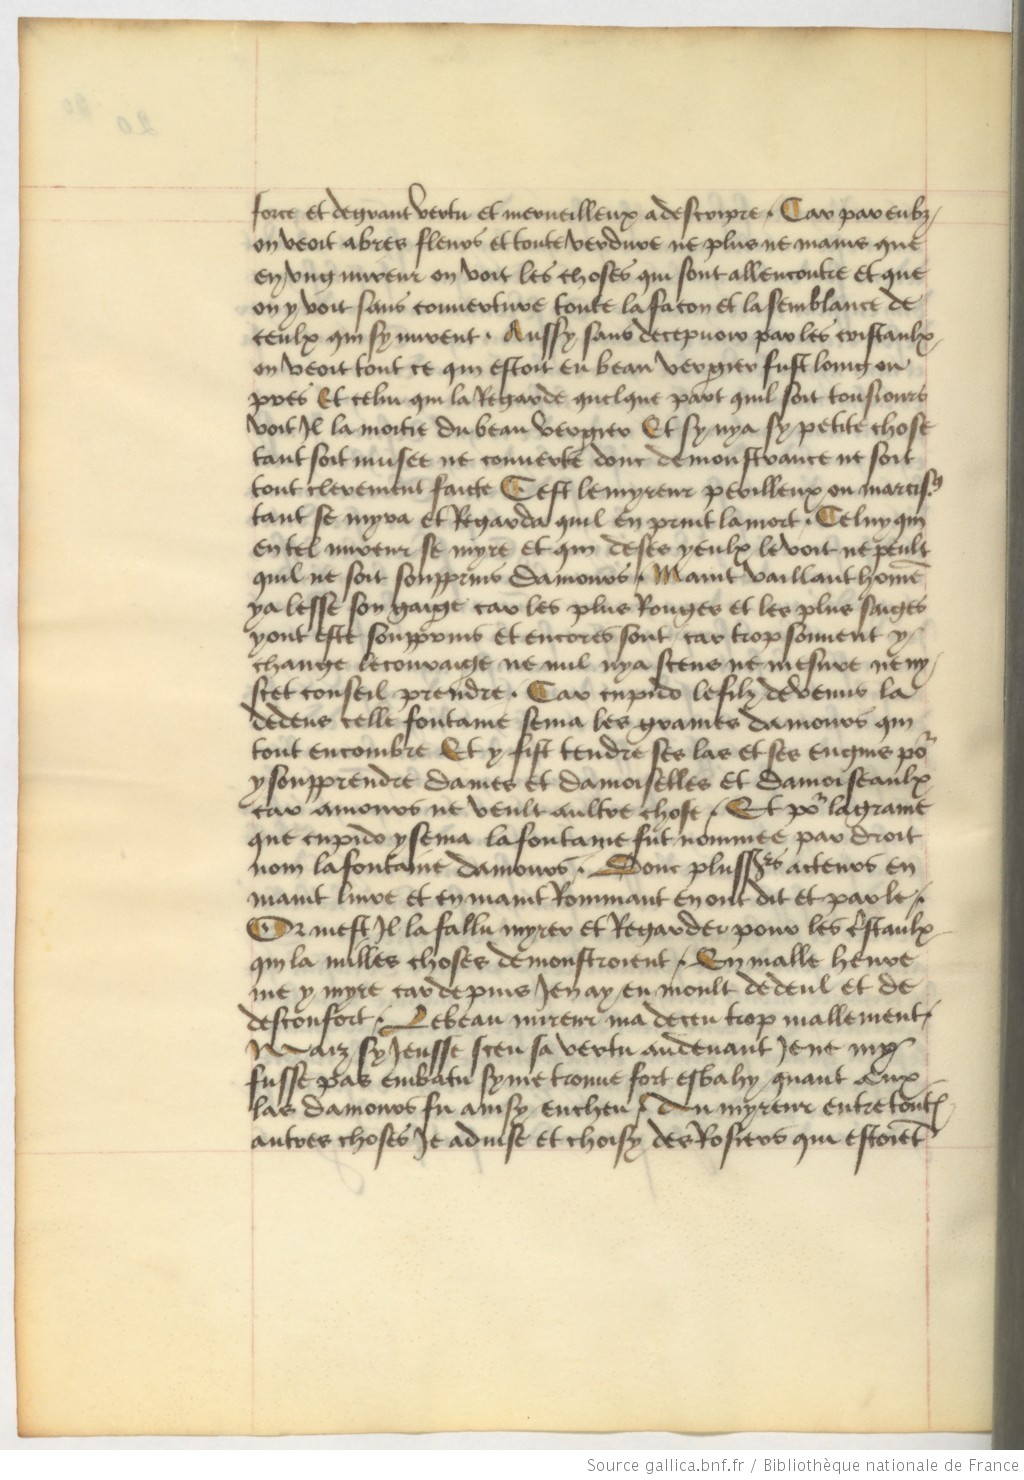 force et de grant vertu et merveilleux a descripre. Car par eubz
on veoit abres fleurs et toute verdure ne plus ne mains que
en ung mireur on voit les choses qui sont allencontre et que
on y voit sans couverture toute la facon et la semblance de
ceulx qui sy mirent. Aussy sans decepuoir par les cristaulx
on veoit tout ce qui estoit en beau vergier fust loing ou
pres Et celui qui la Regarde quelque part quil soit tousiours
voit Il la moitie du beau vergier Et sy nya sy petite chose
tant soit musee ne couverte donc demonstrance ne soit
tout clerement faicte Cest le myreur perilleux ou narcisus
tant se myra et Regarda quil en print la mort. Celuy qui
en tel mireur se myre et qui de ses yeulx le voit ne peult
quil ne soit souppris damours. Maint vaillant homē
ya lesse son gaige car les plus Rouges et les plus saiges
y ont este souppris et encores sont car trop souuent y
change le couraige ne nul nya scens ne mesure ne ny
scet conseil prendre. Car cupido le filz de venus la
dedens celle fontaine sema les graines damours qui
tout encombre Et y fist tendre ses las et ses engins po^r
y soupprendre dames et damoiselles et damoiseaulx
car amours ne veult aultre chose. Et po^r la graine
que cupido y sema la fontaine fut nommee par droit
nom la fontaine damours. Donc pluss^rs acteurs en
maint livre et en maint Rommant en ont dit et parle.
Or mest Il la fallu myrer et Regarder pour les c^istaulx
qui la milles choses demonstroient. En malle heure
me y myre car depuis Jen ay eu moult de deul et de
desconfort. Le beau mireur ma deceu trop mallement.
Maiz sy Jeusse sceu sa vertu audeuant Je ne my
fusse pas embatu sy me trouue fort esbahy quant aux
las damours fu ainsy encheu. Au myreur entre toutes
autres choses Je aduise et choisy des Rosiers qui estoiēt